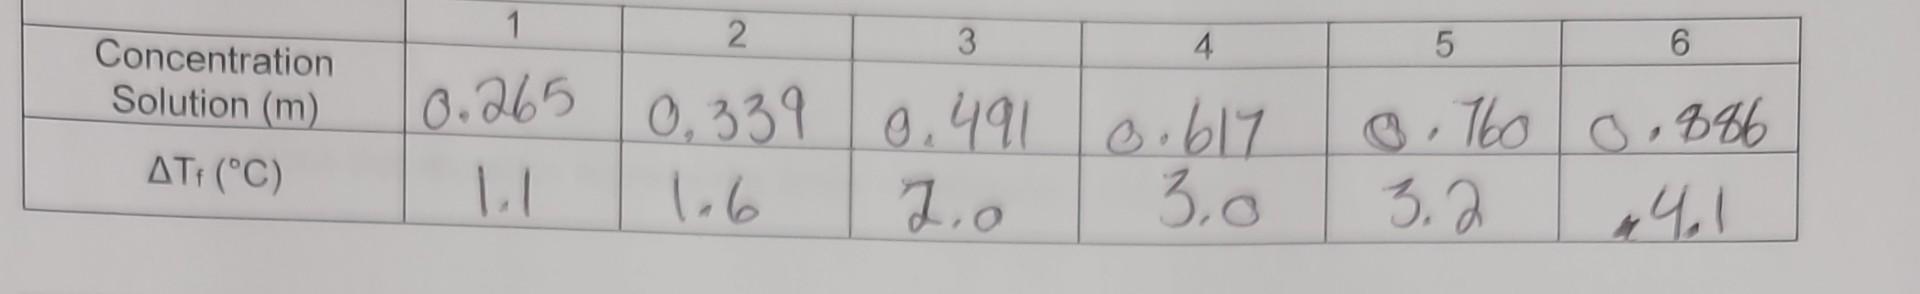 1 2 3 4 5 6
Concentration
Solution (m) 0.265 0.339 0.491 0.617 0.760 0.886
ΔTf (°C) 1.1 1.6 2.0 3.0 3.2 4.1